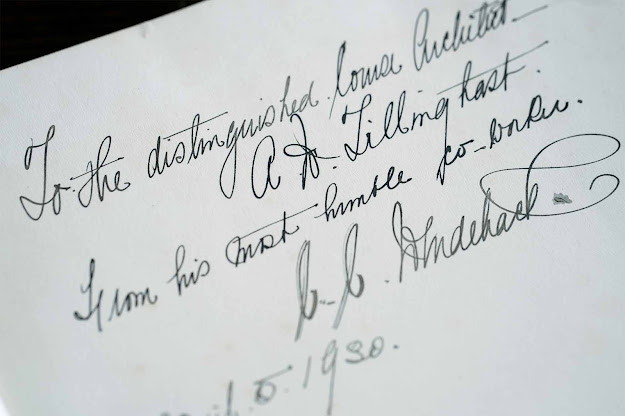 To the distinguished Course Architect —
A W. Tillinghast.
From his most humble co-worker.
C. C. Wendehack
5. 1930.